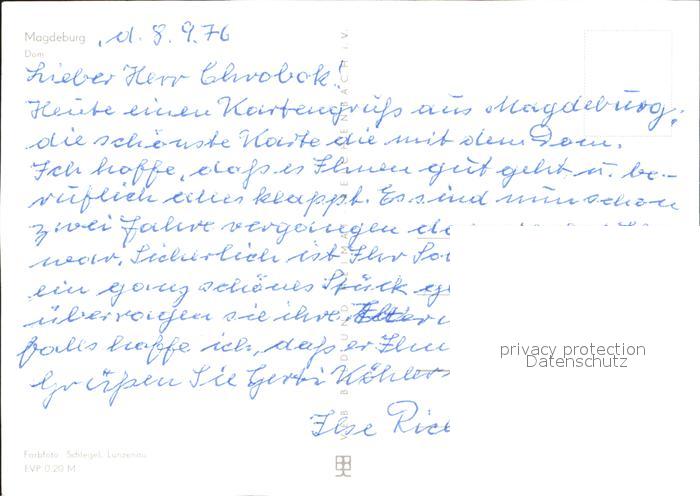 Magdeburg , d. 8. 9. 76
Dom
Lieber Herr Chrobok!
Heute einen Kartengruß aus Magdeburg,
die schönste Karte die mit dem Dom.
Ich hoffe, daß es Ihnen gut geht u. be-
ruflich alles klappt. Es sind nun schon
zwei Jahre vergangen
war. Sicherlich ist Ihr
ein ganz schönes Stück
überragen sie ihre Eltern
falls hoffe ich, daß er
Grüßen Sie
Ilse
privacy protection
Datenschutz
Farbfoto: Schlegel, Lunzenau
EVP 0,20 M